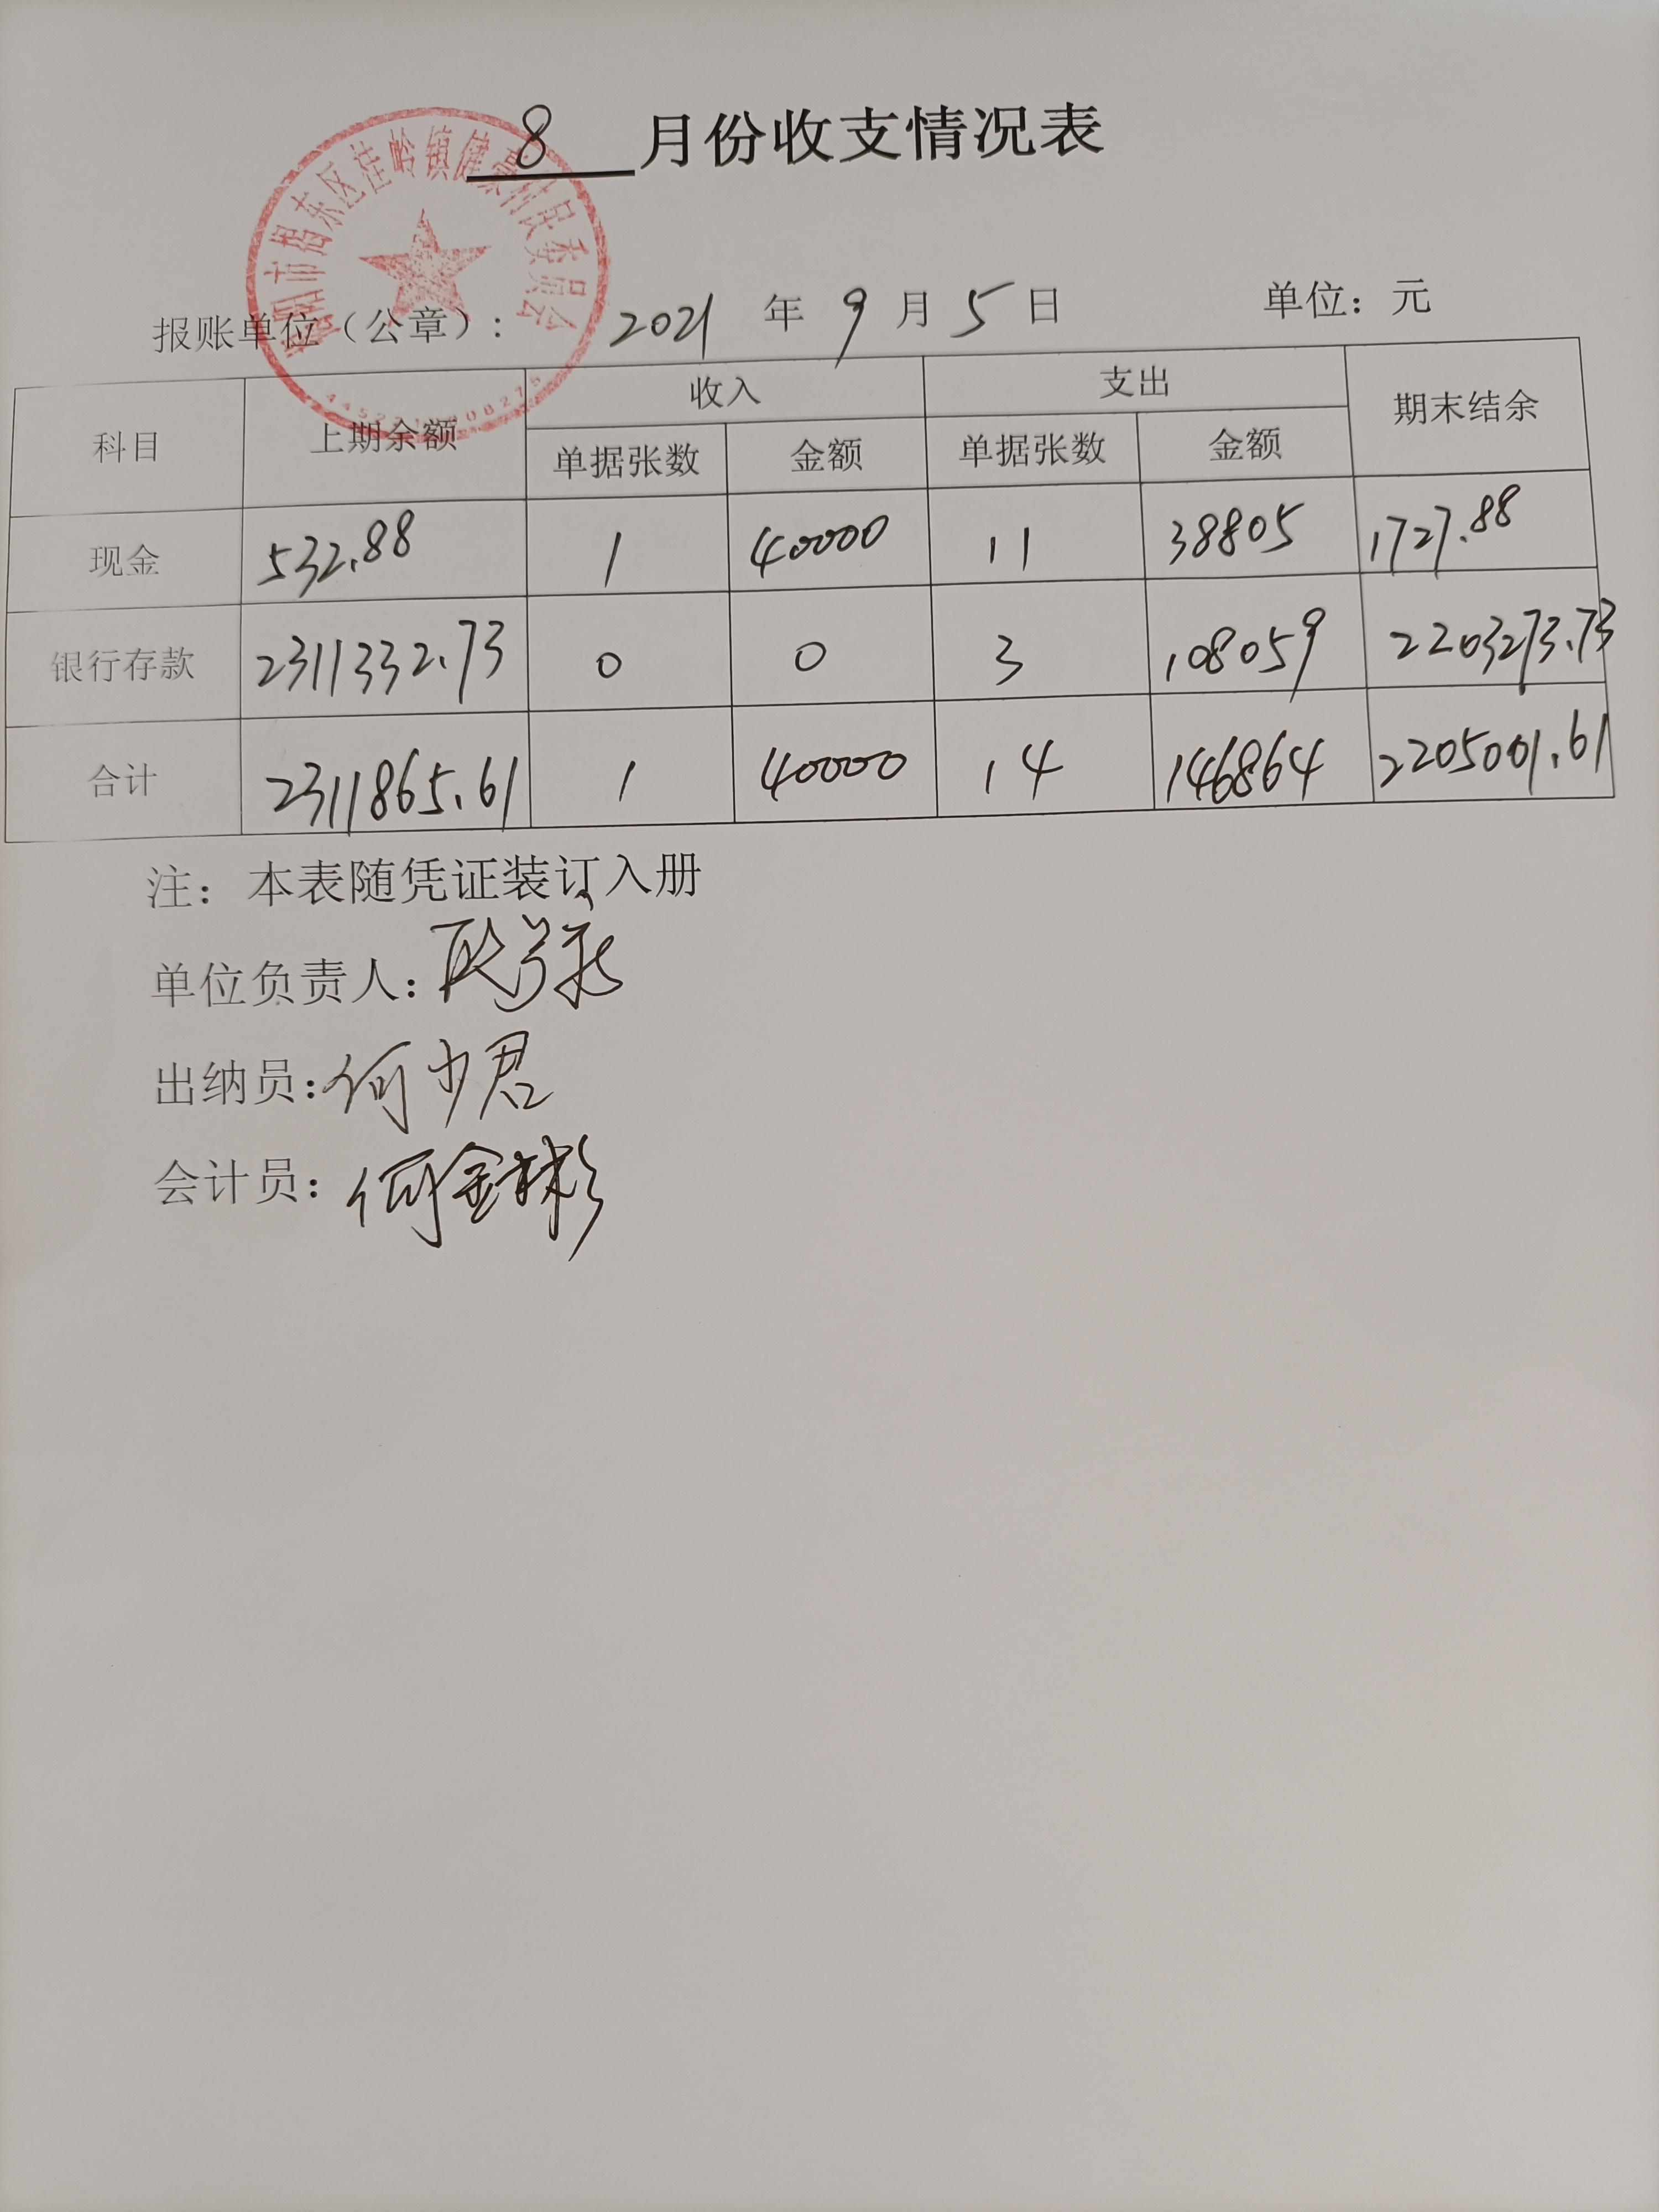 8 月份收支情况表
市揭东区桂岭镇健豪村民委员会
报账单位（公章）： 2021 年 9 月 5 日 单位：元
科目 上期余额 收入 支出 期末结余
单据张数 金额 单据张数 金额
现金 532.88 1 40000 11 38805 1727.88
银行存款 2311332.73 0 0 3 108059 2203273.73
合计 2311865.61 1 40000 14 146864 2205001.61
注：本表随凭证装订入册
单位负责人：
出纳员：何少君
会计员：何金彬